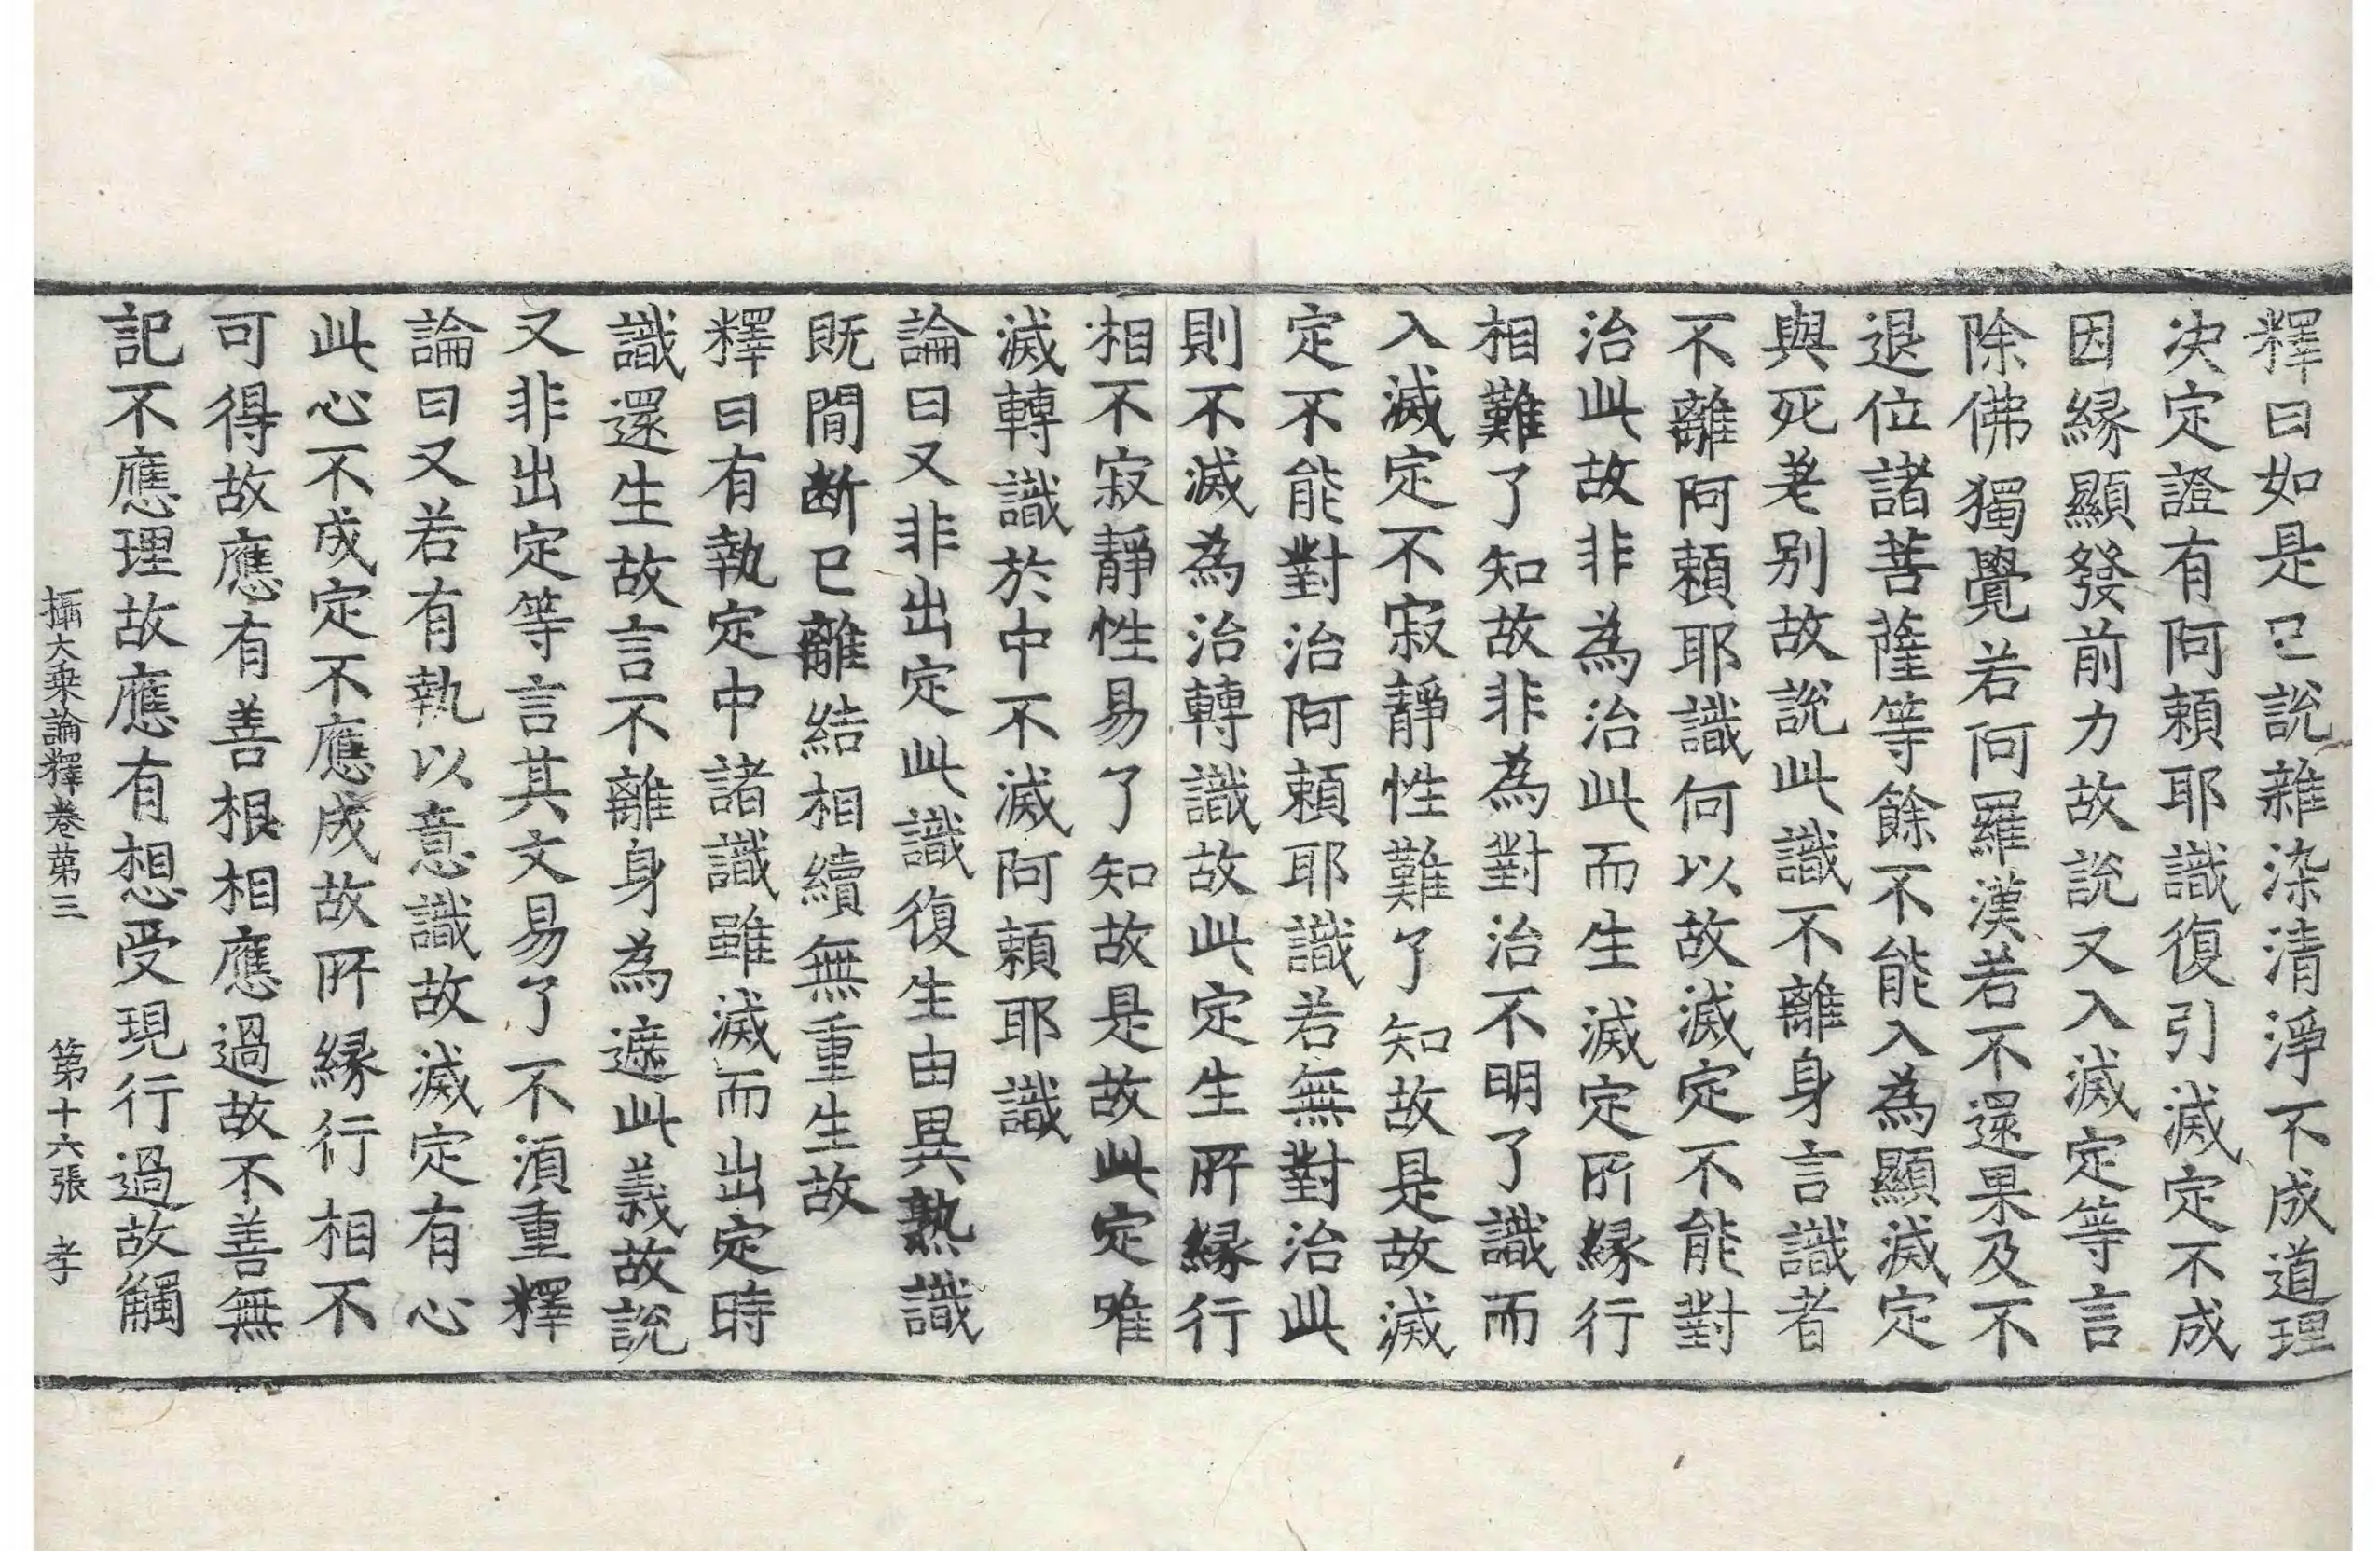 釋曰如是已說雜染清淨不成道理
决定證有阿頼耶識復引滅定不成
因縁顯發前力故說又入滅定等言
除佛獨覺若阿羅漢若不還果及不
退位諸菩薩等餘不能入為顯滅定
與死者別故說此識不離身言識者
不離阿頼耶識何以故滅定不能對
治此故非為治此而生滅定所縁行
相難了知故非為對治不明了識而
入滅定不寂靜性難了知故是故滅
定不能對治阿頼耶識若無對治此
則不滅為治轉識故此定生所縁行
相不寂靜性易了知故是故此定唯
滅轉識於中不滅阿頼耶識
論曰又非出定此識復生由異熟識
既間断已離結相續無重生故
釋曰有執定中諸識雖滅而出定時
識還生故言不離身為遮此義故說
又非出定等言其文易了不湏重釋
論曰又若有執以意識故滅定有心
此心不成定不應成故所縁行相不
可得故應有善根相應過故不善無
記不應理故應有想受現行過故觸
攝大乗論釋卷第三 第十六張 孝